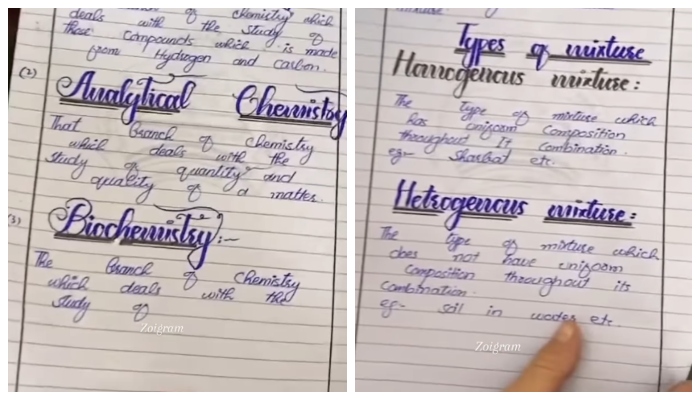 deals with of chemistry which
the study of
that compounds which is made
from Hydrogen and carbon.
(2) Analytical Chemistry
That branch of chemistry
which deals with the
study of quantity and
quality of a matter.
(3) Biochemistry:-
The branch of chemistry
which deals with the
study of
Zoigram
Types of mixture
Homogenous mixture:
The type of mixture which
has uniform composition
throughout It combination.
eg- Sharbat etc.
Hetrogenous mixture:
The type of mixture which
does not have uniform
composition throughout its
combination.
eg- soil in etc.
Zoigram